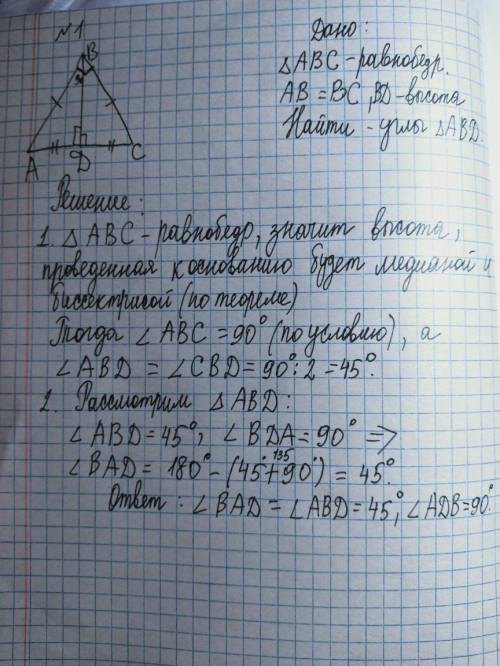 №1
B
A
D
C
Дано:
△ABC - равнобедр.
AB = BC, BD - высота
Найти - углы △ABD.
Решение:
1. △ABC - равнобедр, значит высота,
проведенная к основанию будет медианой и
биссектрисой (по теореме)
Тогда ∠ABC = 90° (по условию), а
∠ABD = ∠CBD = 90°: 2 = 45°.
2. Рассмотрим △ABD:
∠ABD = 45°, ∠BDA = 90° =>
135
∠BAD = 180° - (45°+90°) = 45°.
Ответ: ∠BAD = ∠ABD = 45°, ∠ADB = 90°.